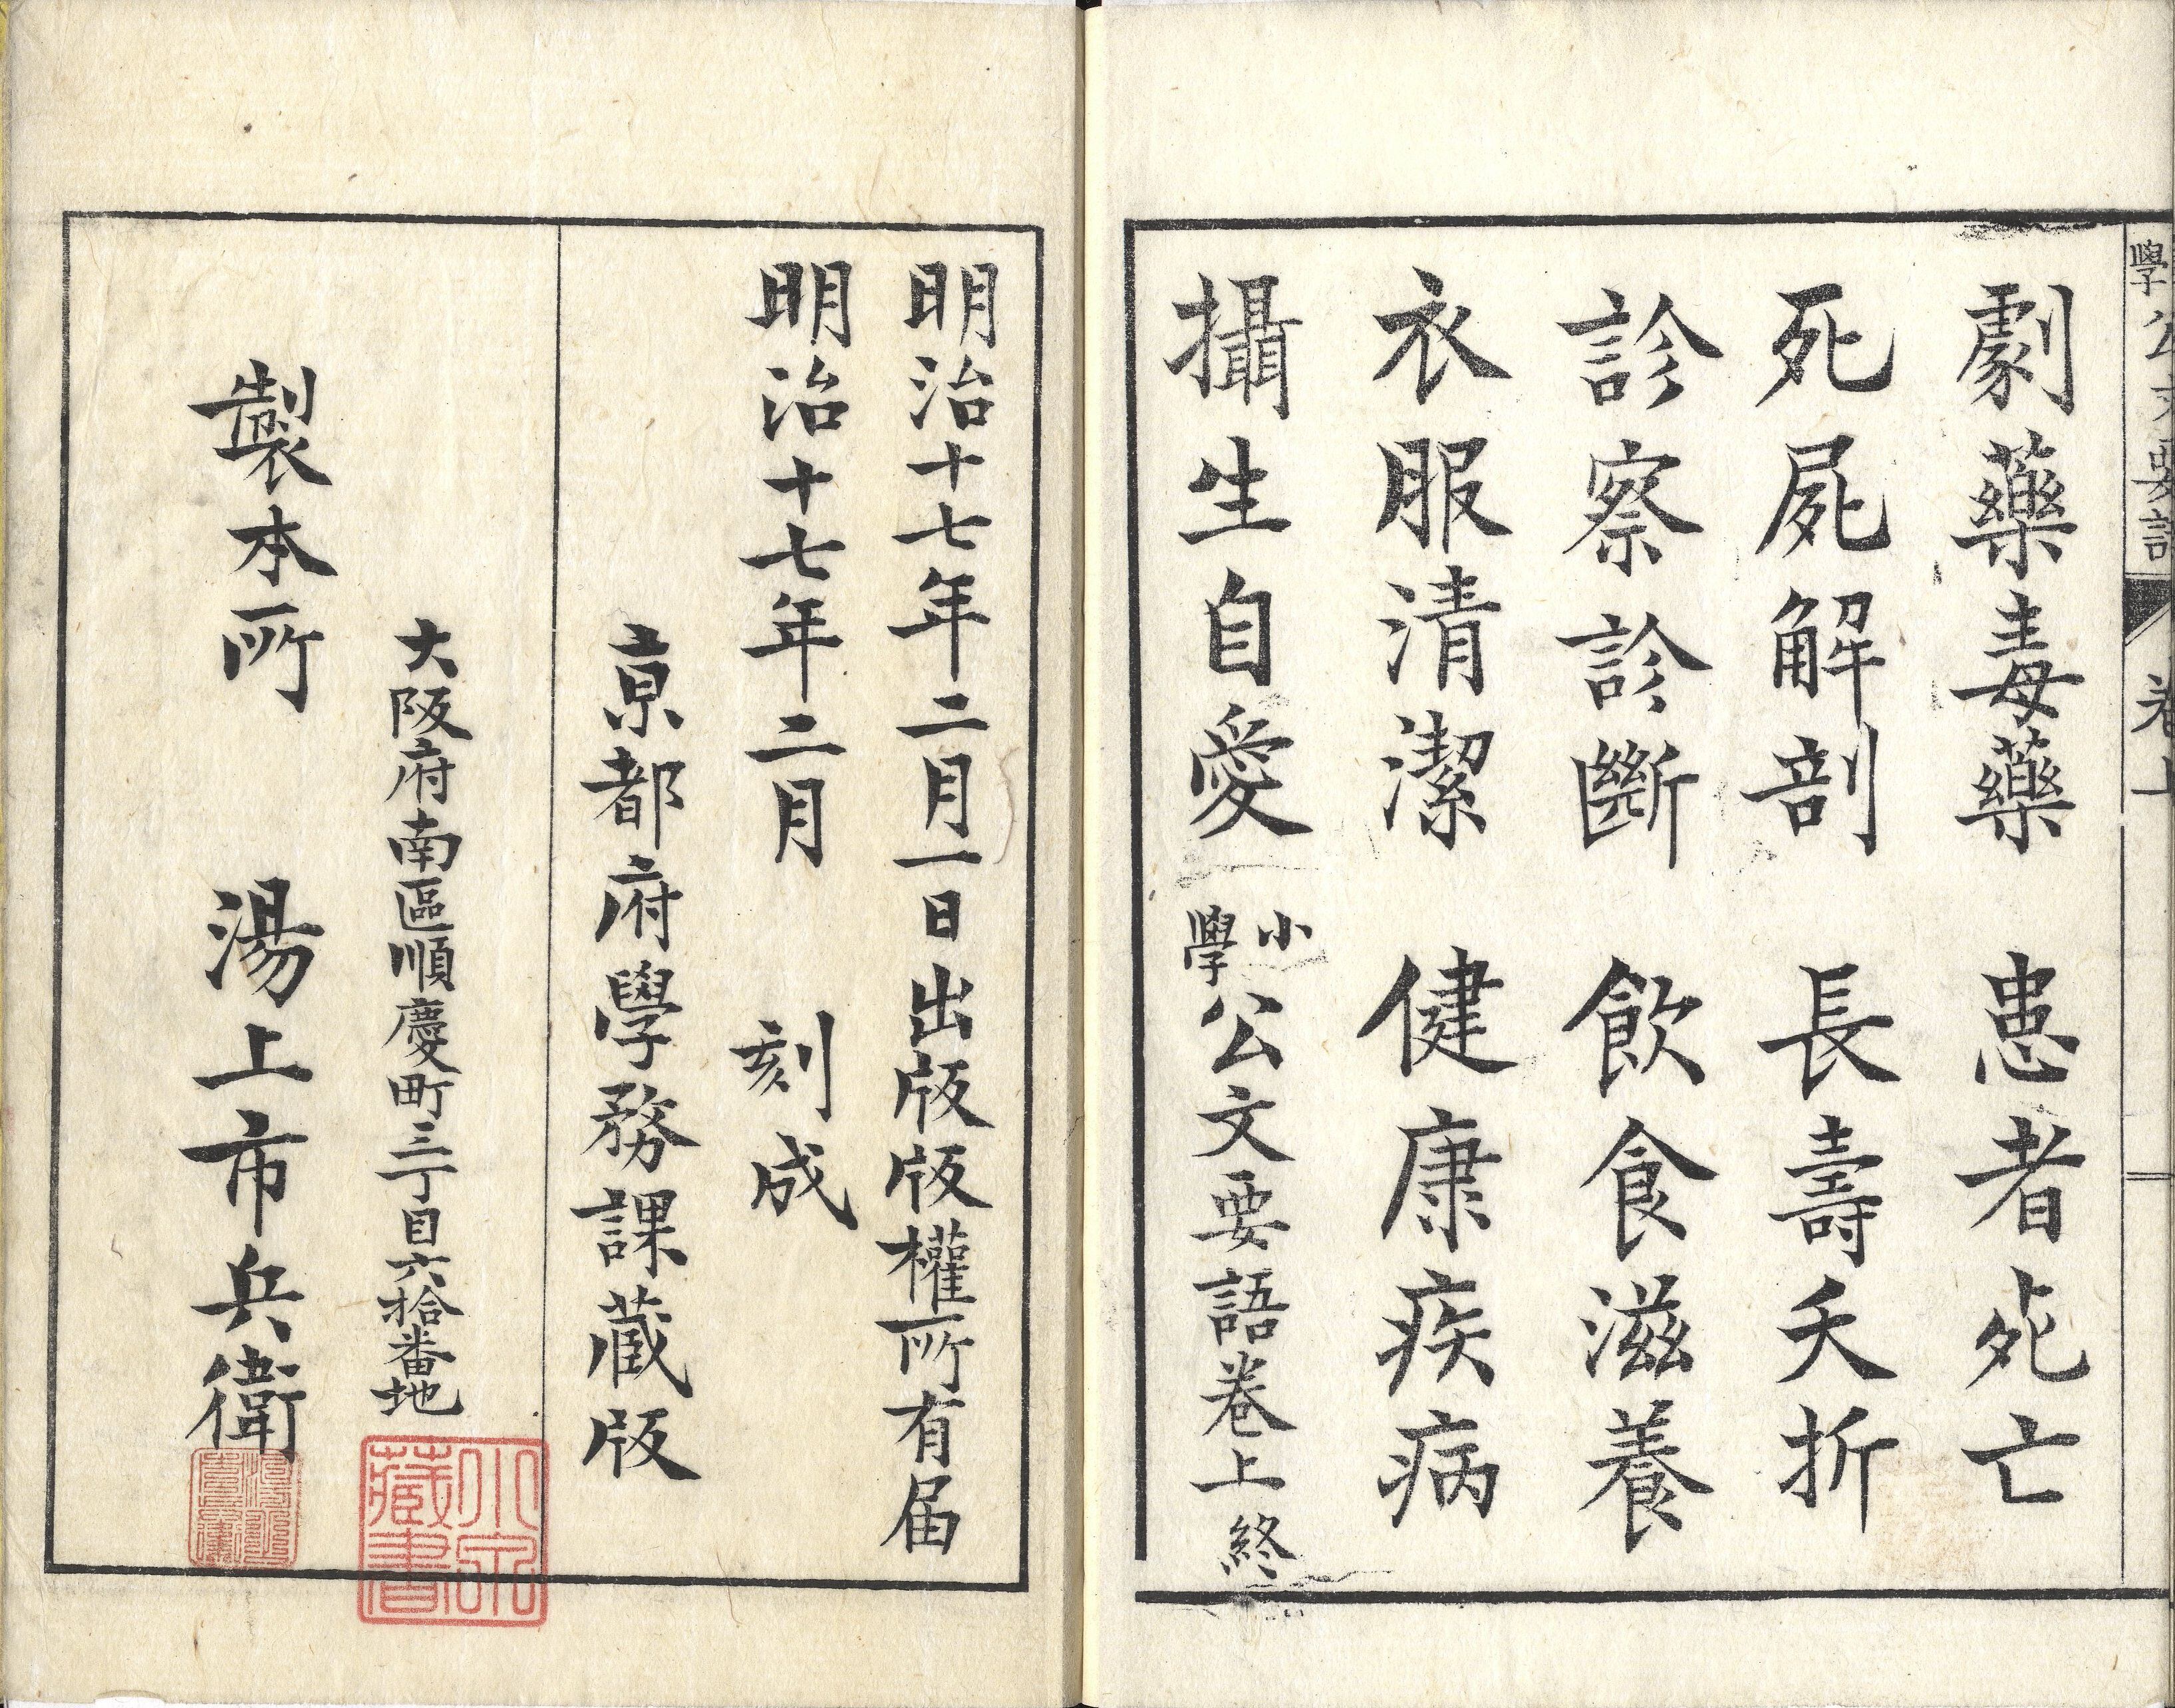 劇藥毒藥　患者死亡
死屍解剖　長壽夭折
診察診斷　飮食滋養
衣服清潔　健康疾病
攝生自愛　小學公文要語卷上終
明治十七年二月一日出版版權所有届
明治十七年二月　刻成
京都府學務課蔵版
大阪府南區順慶町三丁目六拾番地
製本所　湯上市兵衛
藏書